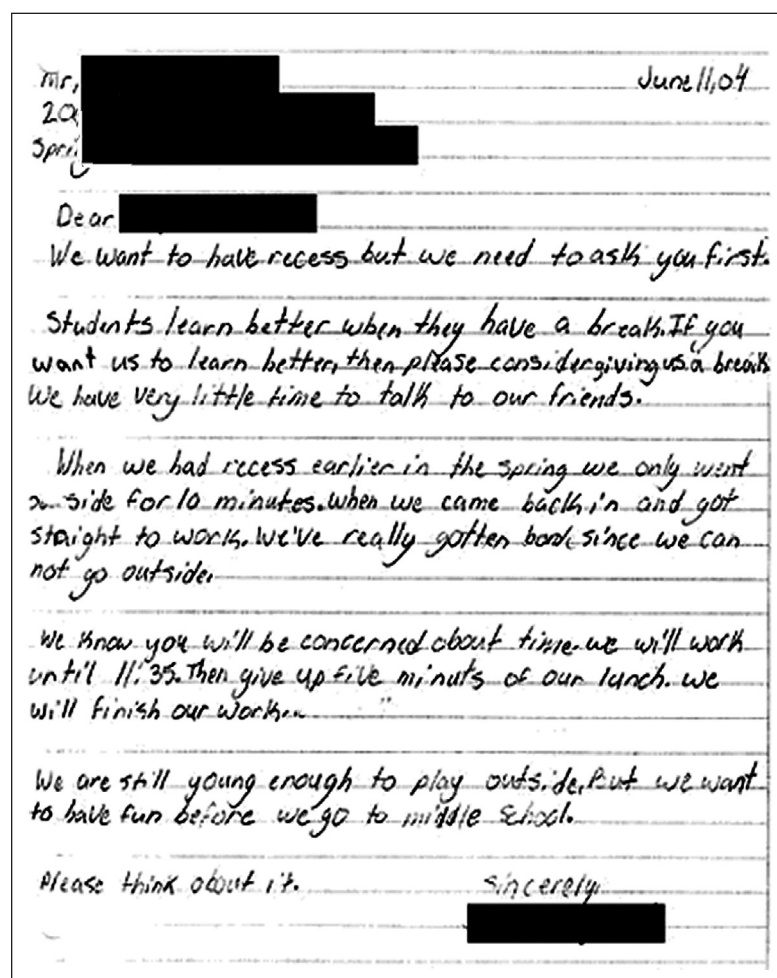 Mr, June 11, 04
20
Spri
Dear
We want to have recess but we need to ask you first.
Students learn better when they have a break. If you
want us to learn better, then please consider giving us a break
We have very little time to talk to our friends.
When we had recess earlier in the spring we only went
side for 10 minutes. When we came back in and got
staight to work. We've really gotten since we can
not go outside.
We know you will be concerned about time. we will work
until 11:35. Then give up five minuts of our lunch. we
will finish our work.
We are still young enough to play outside, But we want
to have fun before we go to middle school.
Please think about it. Sincerely,